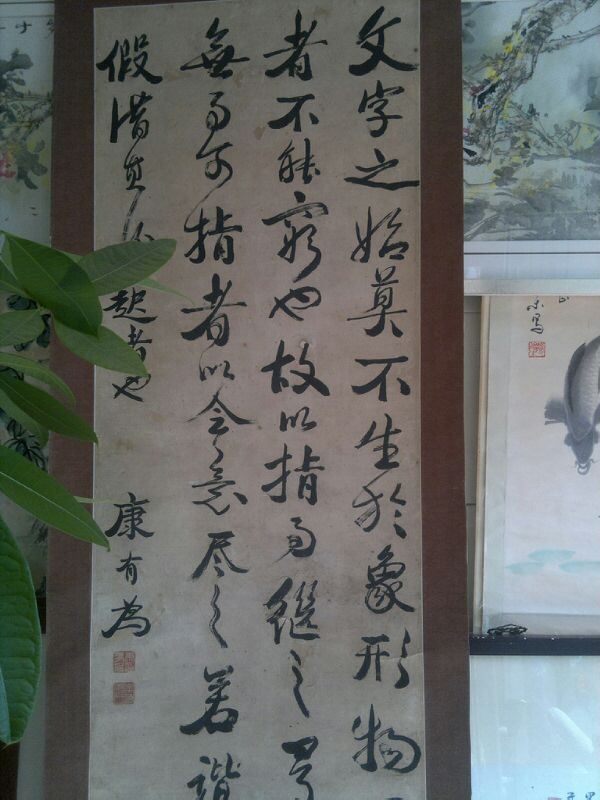 文字之始莫不生於象形物
者不能窮也故以指事繼之
無事可指者以会意尽之若諧
假借其後起者也
康有為